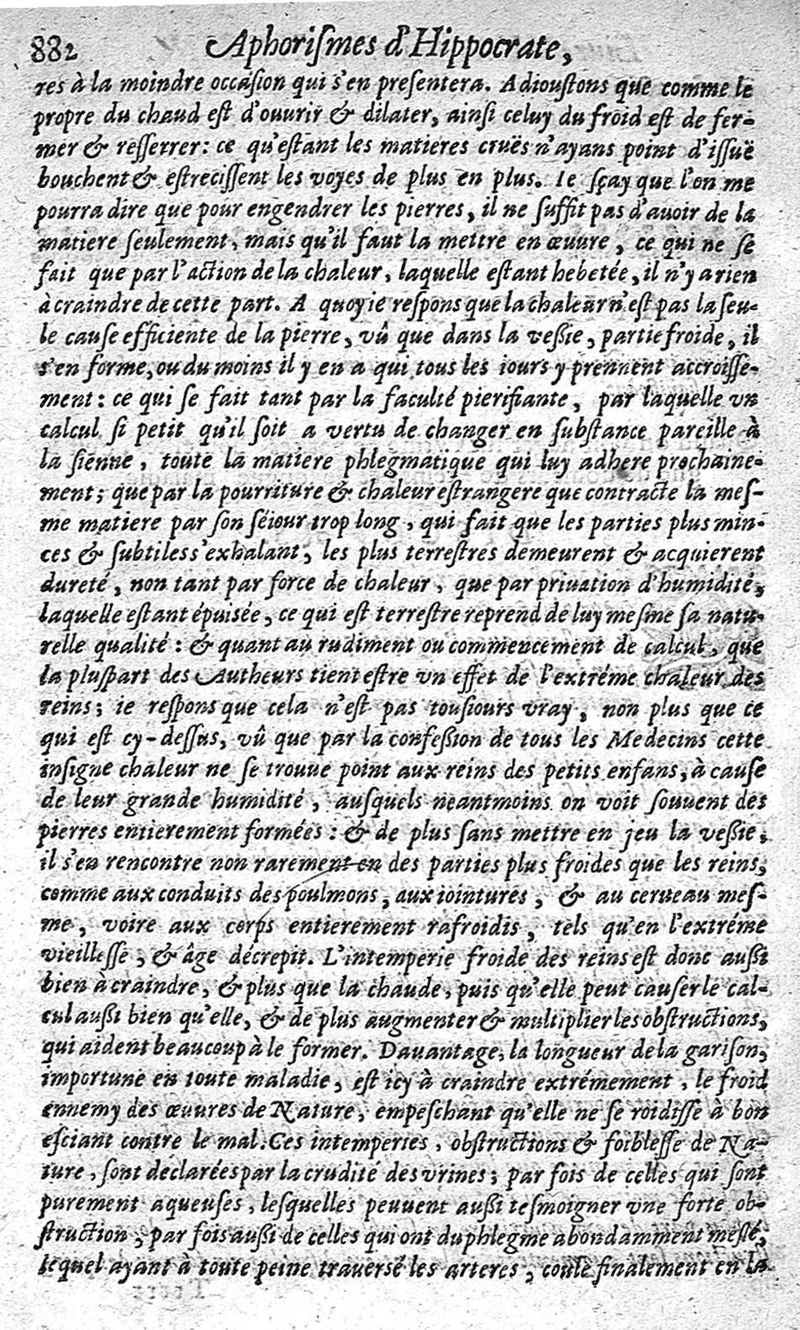 882 Aphoriſmes d'Hippocrate,
res à la moindre occaſion qui s'en preſentera. Adiouſtons que comme le
propre du chaud eſt d'ouurir & dilater, ainſi celuy du froid eſt de fer-
mer & reſſerrer: ce qu'eſtant les matieres cruës n'ayans point d'iſſuë
bouchent & eſtreciſſent les voyes de plus en plus. Ie ſçay que l'on me
pourra dire que pour engendrer les pierres, il ne ſuffit pas d'auoir de la
matiere ſeulement, mais qu'il faut la mettre en œuure, ce qui ne ſe
fait que par l'action de la chaleur, laquelle eſtant hebetée, il n'y a rien
à craindre de cette part. A quoy ie reſpons que la chaleur n'eſt pas la ſeu-
le cauſe efficiente de la pierre, vû que dans la veßie, partie froide, il
s'en forme, ou du moins il y en a qui tous les iours y prennent accroiſſe-
ment: ce qui ſe fait tant par la faculté pierifiante, par laquelle vn
calcul ſi petit qu'il ſoit a vertu de changer en ſubſtance pareille à
la ſienne, toute la matiere phlegmatique qui luy adhere prochaine-
ment; que par la pourriture & chaleur eſtrangere que contracte la meſ-
me matiere par ſon ſéiour trop long, qui fait que les parties plus min-
ces & ſubtiles s'exhalant, les plus terreſtres demeurent & acquierent
dureté, non tant par force de chaleur, que par priuation d'humidité,
laquelle eſtant épuisée, ce qui eſt terreſtre reprend de luy meſme ſa natu-
relle qualité: & quant au rudiment ou commencement de calcul, que
la pluſpart des Autheurs tient eſtre vn effet de l'extréme chaleur des
reins; ie reſpons que cela n'eſt pas touſiours vray, non plus que ce
qui eſt cy-deſſus, vû que par la confeßion de tous les Medecins cette
inſigne chaleur ne ſe trouue point aux reins des petits enfans, à cauſe
de leur grande humidité, auſquels neantmoins on voit ſouuent des
pierres entierement formées: & de plus ſans mettre en jeu la veßie,
il s'en rencontre non rarement en des parties plus froides que les reins,
comme aux conduits des poulmons, aux iointures, & au cerueau meſ-
me, voire aux corps entierement rafroidis, tels qu'en l'extréme
vieilleſſe, & âge décrepit. L'intemperie froide des reins eſt donc außi
bien à craindre, & plus que la chaude, puis qu'elle peut cauſer le cal-
cul außi bien qu'elle, & de plus augmenter & multiplier les obſtructions,
qui aident beaucoup à le former. Dauantage, la longueur de la gariſon,
importune en toute maladie, eſt icy à craindre extrémement, le froid
ennemy des œuures de Nature, empeſchant qu'elle ne ſe roidiſſe à bon
eſciant contre le mal. Ces intemperies, obſtructions & foibleſſe de Na-
ture, ſont declarées par la crudité des vrines; par fois de celles qui ſont
purement aqueuſes, leſquelles peuuent außi teſmoigner vne forte ob-
ſtruction, par fois außi de celles qui ont du phlegme abondamment meſlé,
lequel ayant à toute peine traversé les arteres, coule finalement en la